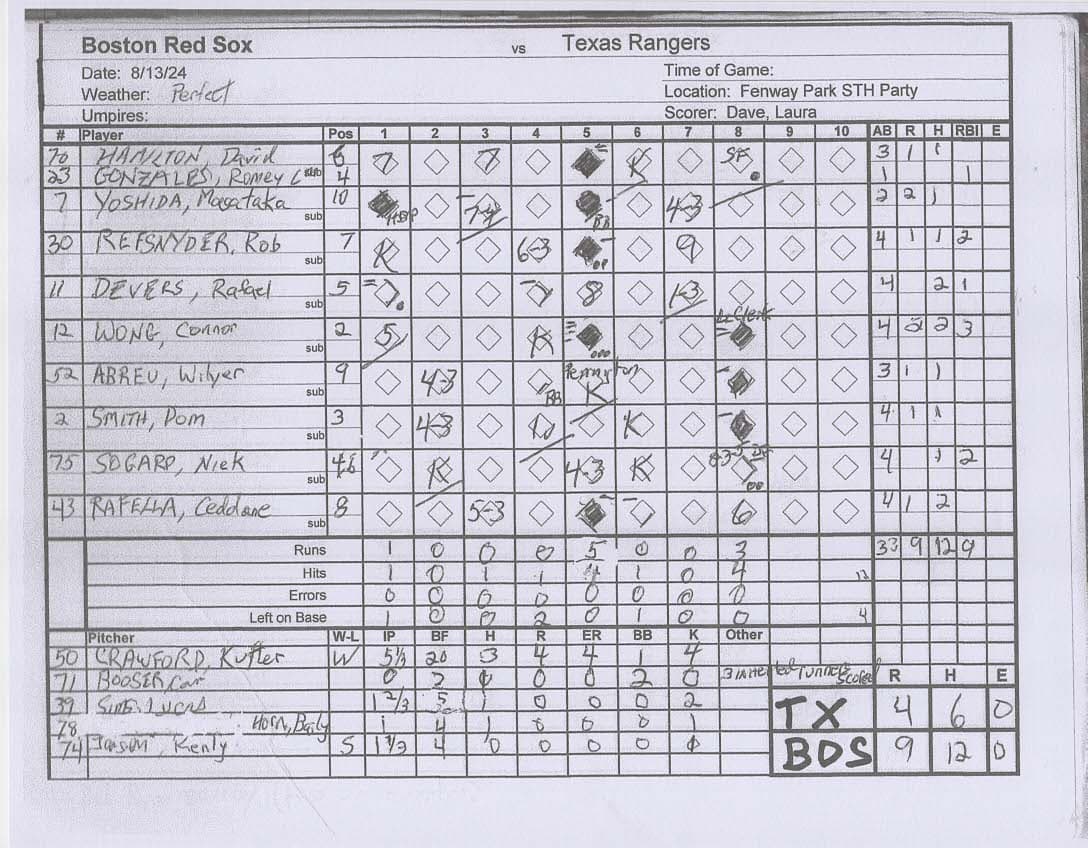 Boston Red Sox vs Texas Rangers
Date: 8/13/24 Time of Game:
Weather: Perfect Location: Fenway Park STH Party
Umpires: Scorer: Dave, Laura
# Player Pos 1 2 3 4 5 6 7 8 9 10 AB R H RBI E
70 HAMILTON, David 6 7 7 K SF 3 1 1
23 GONZALES, Romey sub 4 1 1
7 YOSHIDA, Masataka 10 HBP 7-4 BB 4-3 2 2 1
sub
30 REFSNYDER, Rob 7 K 6-3 9 4 1 1 2
sub
11 DEVERS, Rafael 5 7 7 8 1-3 4 2 1
sub
LeClerk
12 WONG, Connor 2 5 K 4 2 2 3
sub
52 ABREU, Wilyer 9 4-3 BB K 3 1 1
sub
2 SMITH, Dom 3 4-3 K 4 1 1
sub
75 SOGARD, Nick K 4-3 K 4 1 2
sub
43 RAFELLA, Ceddane 8 5-3 7 6 4 1 2
sub
Runs 1 0 0 0 5 0 0 3 33 9 12 9
Hits 1 0 1 1 4 1 0 4 12
Errors 0 0 0 0 0 0 0 0
Left on Base 1 0 0 2 0 1 0 0 4
Pitcher W-L IP BF H R ER BB K Other
50 CRAWFORD, Kutter W 5 1/3 20 3 4 4 1 4
71 BOOSER, Cam 0 2 2 0 3 inherited runners scored
39 Sims, Lucas 1 2/3 5 1 0 0 0 2
78 Horn, Baily 1 4 1 0 0 0 1
74 Janson, Kenly S 1 1/3 4 0 0 0 0
R H E
TX 4 6 0
BOS 9 12 0